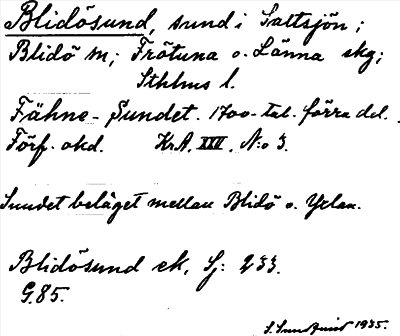 Blidösund, sund i Saltsjön;
Blidö sn; Frötuna o. Länna skg;
Sthlms l.
Fähne-Sundet. 1700-tal. förra del.
Förf. okd. KrA. XIII. N:o 3.
Sundet beläget mellan Blidö o. Yxlan.
Blidösund ek, Sj: 233.
G.85.
1935.